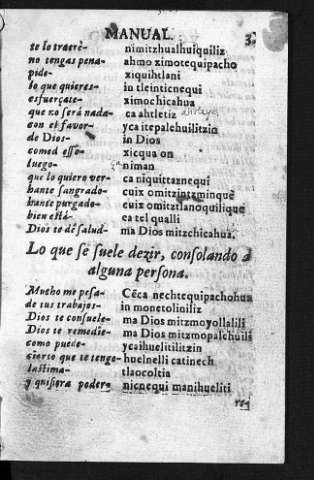 MANUAL. 3.
te lo traerè- nimitzhualhuiquiliz
no tengas pena- ahmo ximotequipacho
pide- xiquihtlani
lo que quieres- in tleinticnequi
esfuerçate- ximochicahua
que no será nada- ca ahtletiz
con el favor- yca itepalehuilitzin
de Dios- in Dios
comed esso- xicqua on
luego- niman
que lo quiero ver- ca niquittaznequi
hante sangrado- cuix omitzintzminquè
hante purgado- cuix omitztlanoquilique
bien està- ca tel qualli
Dios te dè salud- ma Dios mitzchicahua.
Lo que se suele dezir, consolando a
alguna persona.
Mucho me pesa- Cẽca nechtequipachohua
de tus trabajos- in monetoliniliz
Dios te consuele- ma Dios mitzmoyollalili
Dios te remedie- ma Dios mitzmopalehuili
como puede- ycaihuelitilitzin
cierto que te tengo- huelnelli catinech
lastima- tlaocoltia
y quisiera poder- nicnequi manihueliti